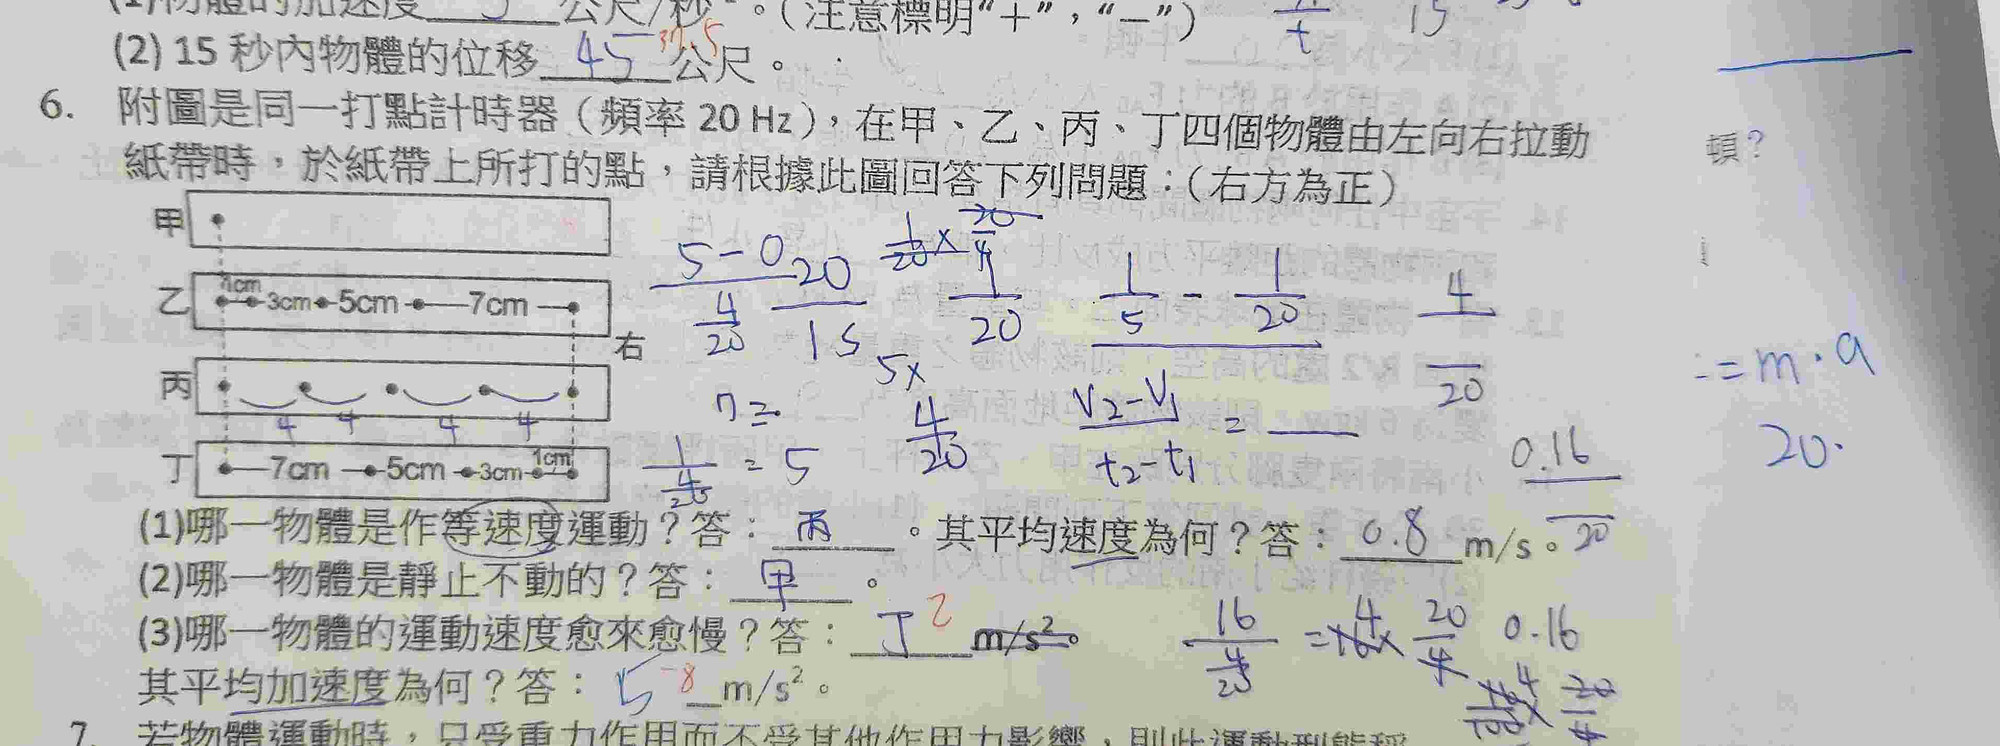 (1)物體的加速度 3 公尺/秒²。(注意標明"＋"，"－")
(2) 15 秒內物體的位移 45 37.5 公尺。
6. 附圖是同一打點計時器（頻率 20 Hz），在甲、乙、丙、丁四個物體由左向右拉動
紙帶時，於紙帶上所打的點，請根據此圖回答下列問題：（右方為正）
頓？
甲
乙 1cm 3cm 5cm 7cm
右
丙
4 4 4 4
丁 7cm 5cm 3cm 1cm
5-0
4/20
20
15
1/20 × 20/4
1/20
1/5 - 1/20
4
20
5×
4/20
V2-V1
t2-t1
= m·a
20.
0.16
20
(1)哪一物體是作等速度運動？答： 丙 。其平均速度為何？答： 0.8 m/s。
(2)哪一物體是靜止不動的？答： 甲 。
(3)哪一物體的運動速度愈來愈慢？答： 丁 m/s²。
其平均加速度為何？答： 5 -8 m/s²。
16
4/20
20/4
0.16
7. 若物體運動時，只受重力作用而不受其他作用力影響，則此運動型態稱